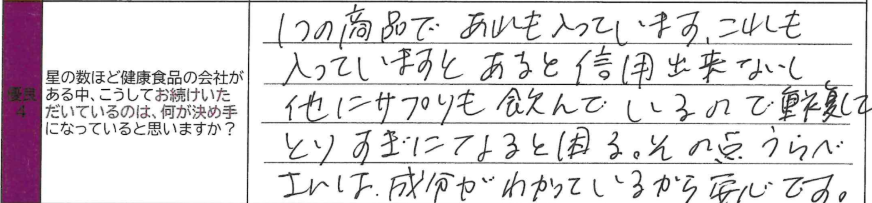 優良
4
星の数ほど健康食品の会社が
ある中、こうしてお続けいた
だいているのは、何が決め手
になっていると思いますか？
1つの商品で あれも入っています、これも
入っていますと あると信用出来ないし
他にサプリも飲んでいるので重複して
とりすぎになると困る。その点うらべ
えいは、成分がわかっているから安心です。